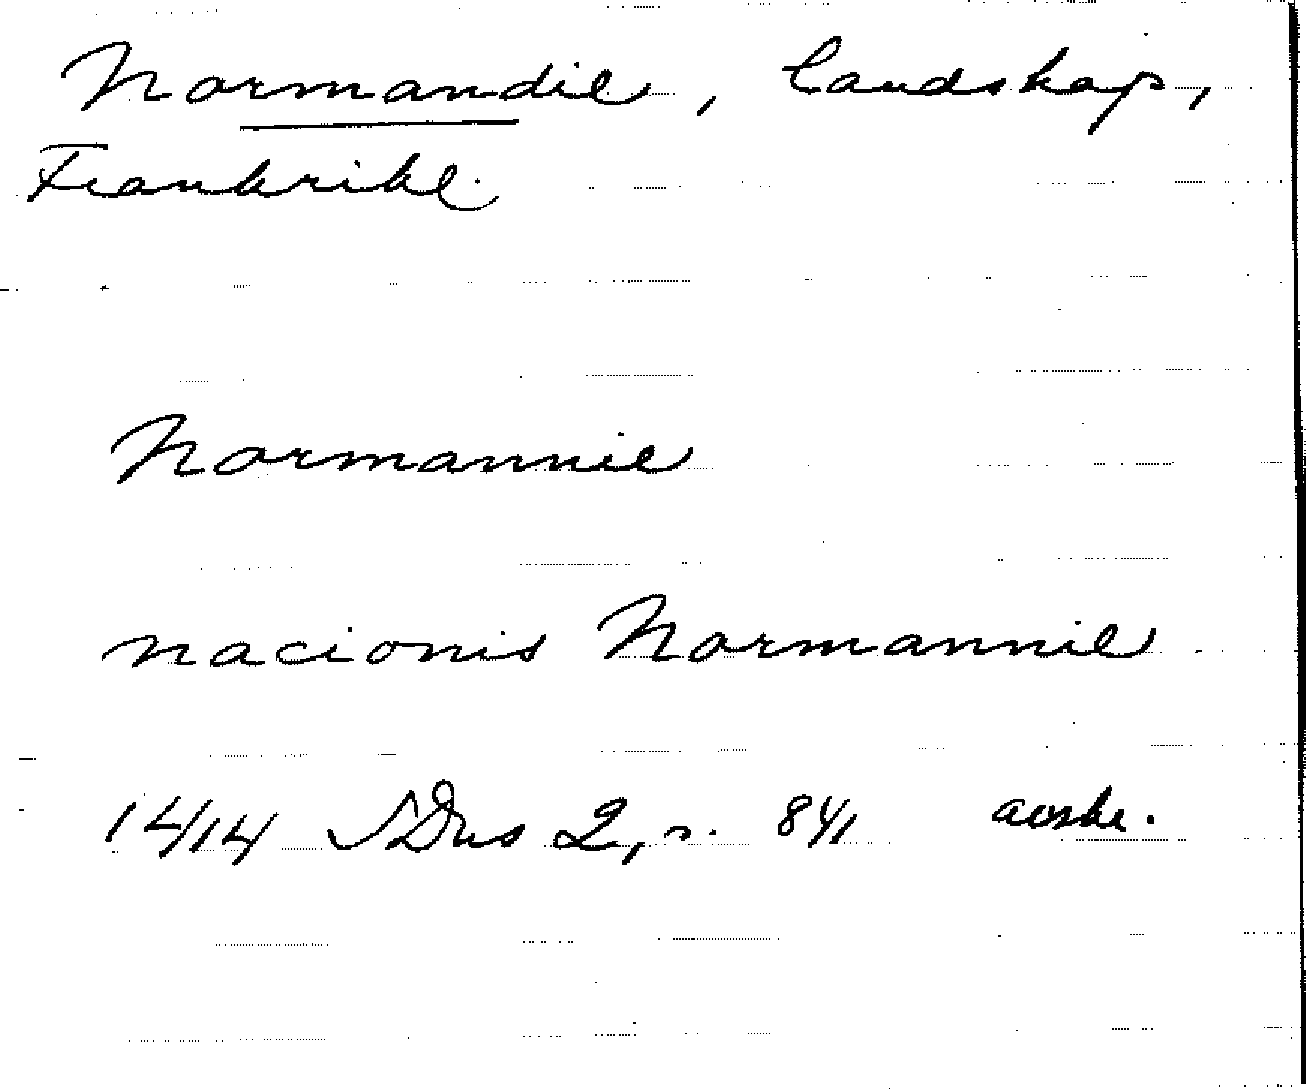 Normandie, landskap,
Frankrike.
Normannie
nacionis Normannie
1414 SDns 2, s. 841 avskr.